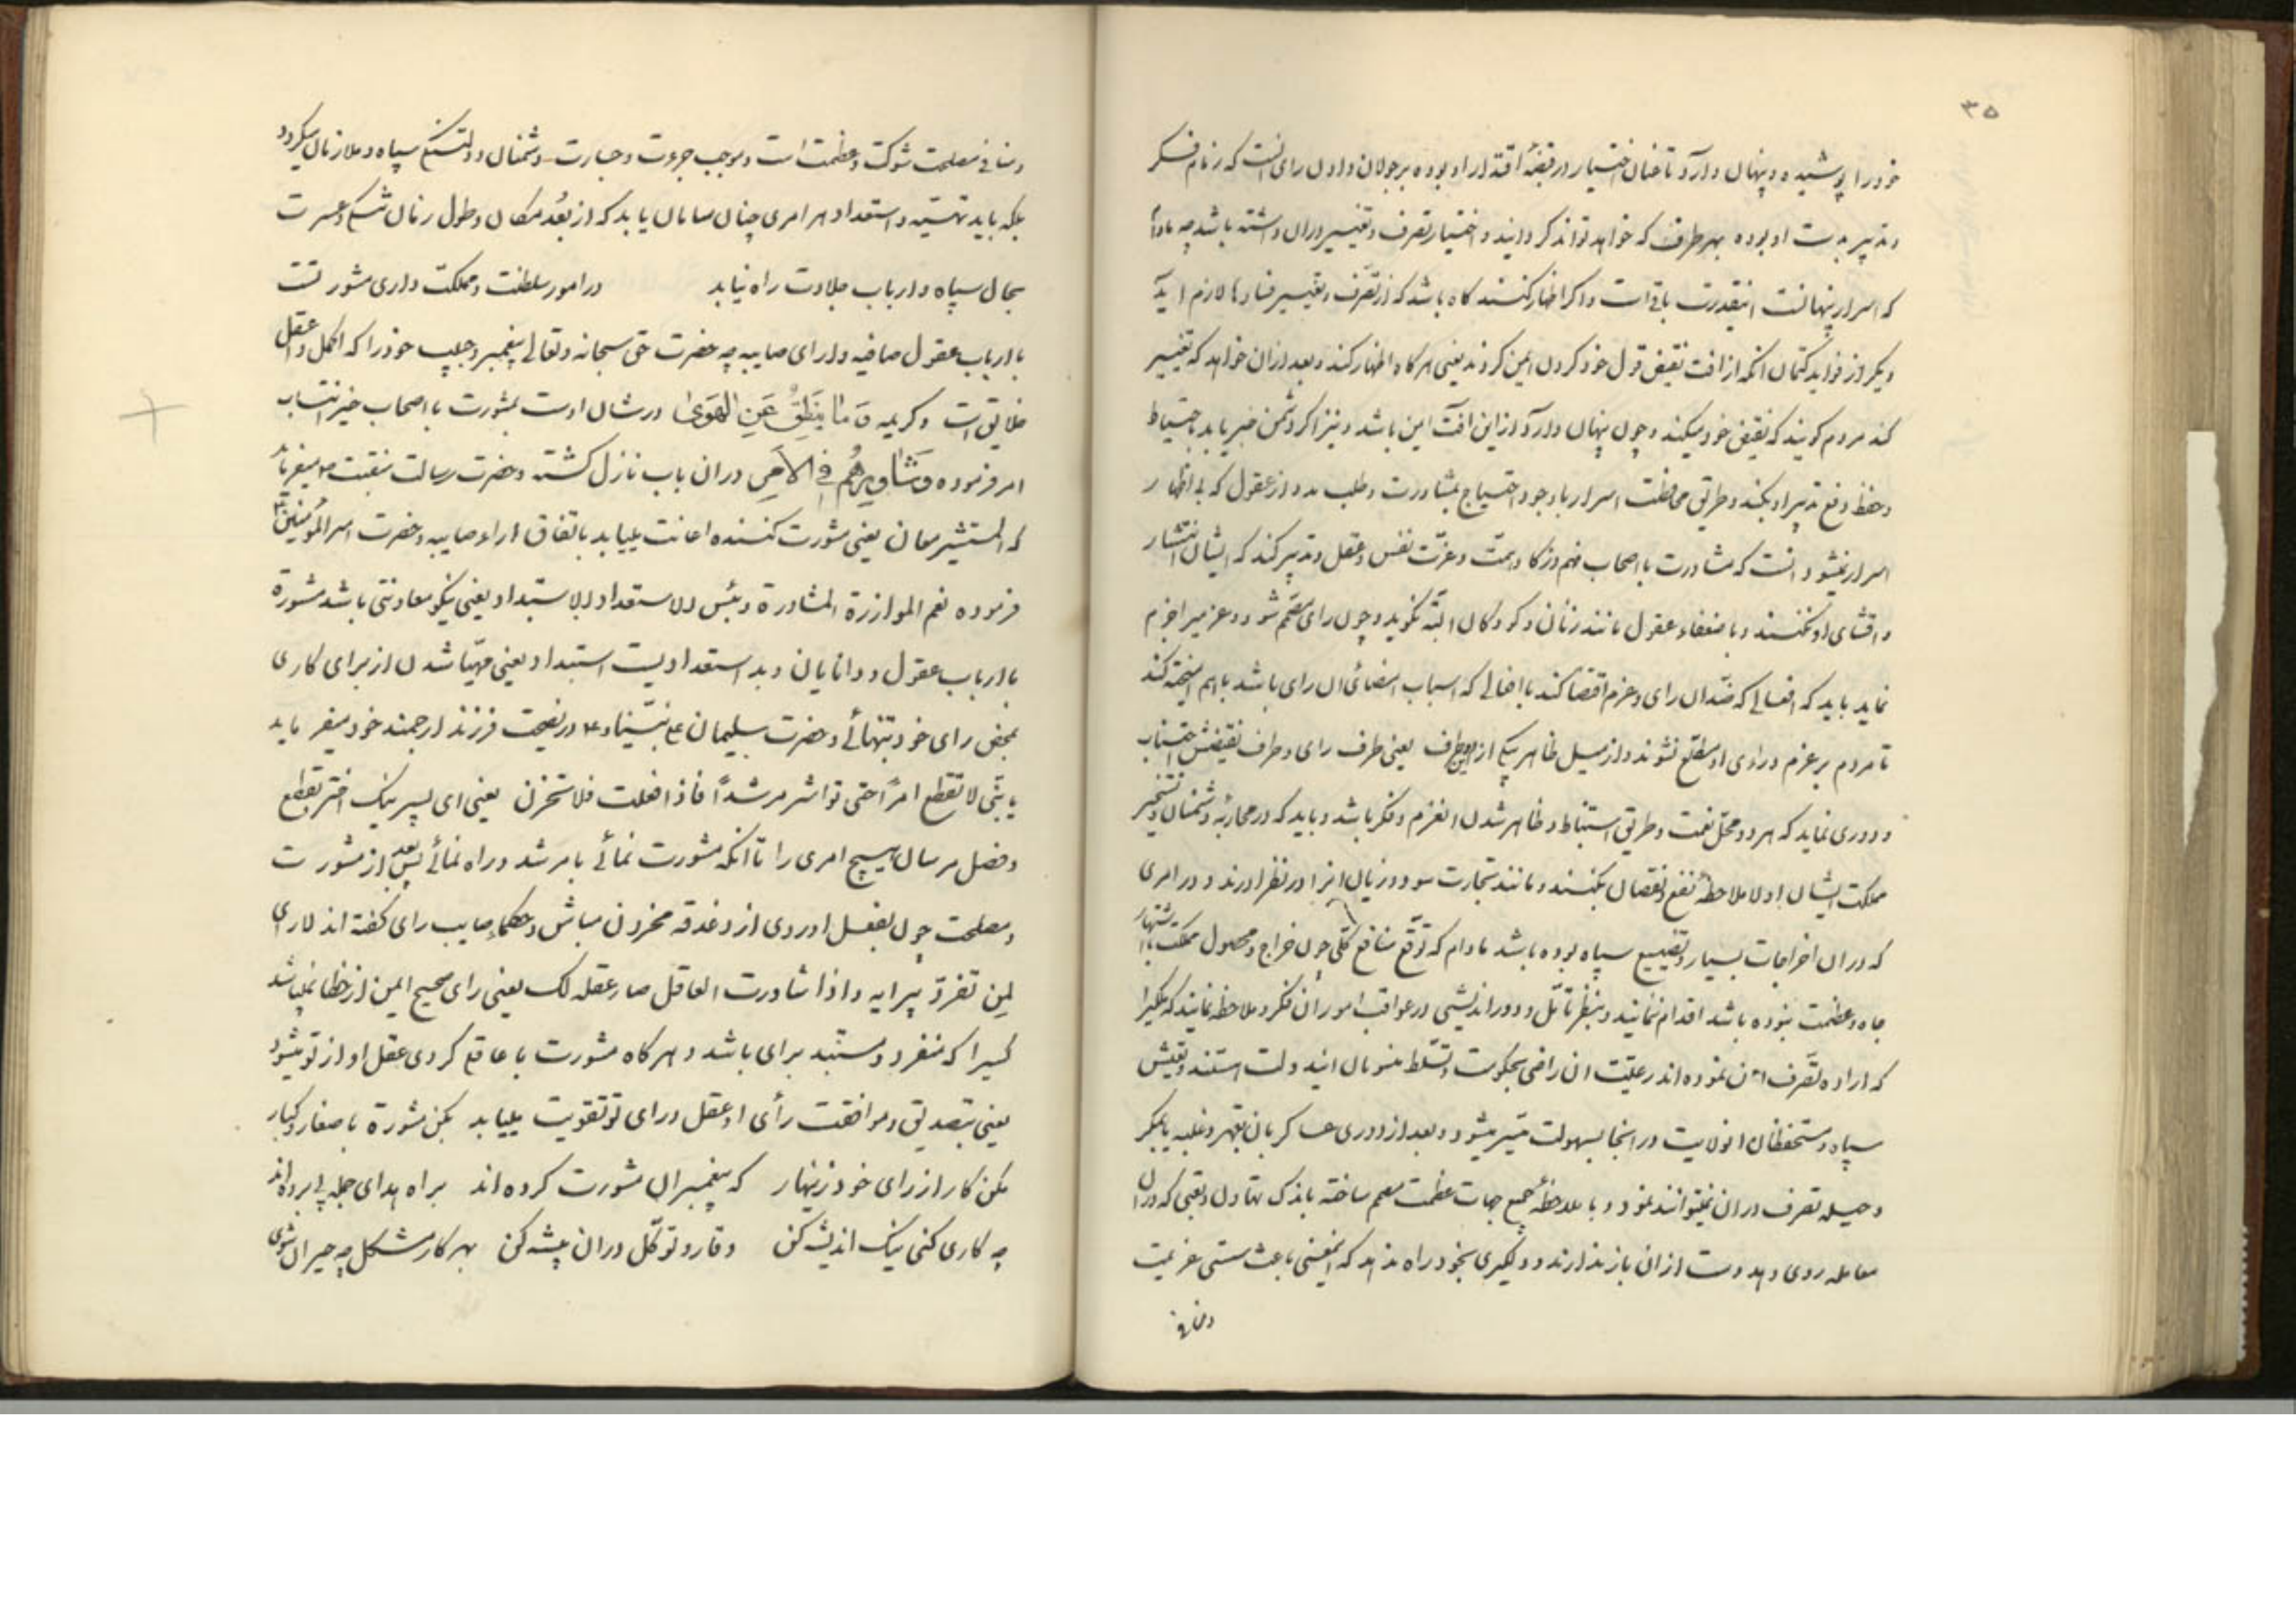 ۳۵
خود را پوشیده و پنهان دارد تا عنان اختیار در قبضهٔ اقتدار او بوده بر جولان دادن رای است که زمام فکر
و تدبیر بدست او بوده بهر طرف که خواهد تواند گردانید و اختیار تصرف و تغییر دران داشته باشد چه مادام
که اسرار پنهانست اینقدرت باقی است و اگر اظهار کنند گاه باشد که از تصرف و تغییر فسادها لازم آید
دیگر از فواید کتمان انکه از افت نقیض قول خود کردن ایمن کردند یعنی هر گاه اظهار کند و بعد ازان خواهد که تغییر
کند مردم کویند که نقیض خود میکند و چون پنهان دارد از این افت ایمن باشد و نیز اگر دشمن خبر یابد باحتیاط
و حفظ دفع تدبیر او بکند و طریق محافظت اسرار با وجود احتیاج بمشاورت و طلب مدد از عقول که بی اظهار
اسرار نمیشود انست که مشاورت با اصحاب فهم و ذکا و همت و عزّت نفس و عقل و تدبیر کند که ایشان انتشار
و افشای او نکنند و با ضعفاء عقول مانند زنان و کودکان البته نکوید و چون رای مصمّم شود و عزم بر اجزم
نماید باید که افعالی که ضدّ ان رای و عزم اقتضا کند با افعالی که اسباب امضائی ان رای باشد باهم امیخته کند
تا مردم بر عزم و رای او مطلع نشوند و از میل ظاهر بیکی ازین دو طرف یعنی طرف رای و طرف نقیضش اجتناب
و دوری نماید که هر دو محلّ تهمت و طریق استنباط و ظاهر شدن انعزم و فکر باشد و باید که در محاربهٔ دشمنان و تسخیر
مملکت ایشان اولا ملاحظهٔ نفع و نقصان بکنند و مانند تجارت سود و زیان انرا در نظر اورند و در امری
که دران اخراجات بسیار و تضییع سپاه بوده باشد مادام که توقّع منافع کلّی چون خراج و محصول مملکت یا اشتهار
جاه و عظمت نبوده باشد اقدام ننمایند و بنظر تأمّل و دور اندیشی در عواقب امور ان فکر و ملاحظه نمایند که ملکیرا
که اراده تصرّف ان نموده اند رعیّت ان راضی بحکومت و تسلّط منسوبان ایندولت هستند و تعیّش
سپاه و مستحفظان انولایت در انجا بسهولت میسّر میشود و بعد از دوری عساکر بان بقهر و غلبه یا بمکر
و حیله تصرف دران نمیتوانند نمود و با ملاحظهٔ جمیع جهات عظمت مصمم ساخته باندک تهاون و تعبی که دران
معامله روی دهد دست ازان باز ندارند و دلگیری بخود راه ندهد که اینمعنی باعث سستی عزیمت
و منافی
و منافی مصلحت شوکت و عظمت است و موجب جرءت و جسارت دشمنان و دلتنگی سپاه و ملازمان میگردد
بلکه باید تهیّه و استعداد هر امری چنان سامان یابد که از بُعد مکان و طول زمان تنگی و عسرت
بحال سپاه و ارباب جلادت راه نیابد در امور سلطنت و مملکت داری مشورتست
با ارباب عقول صافیه و ارای صایبه چه حضرت حق سبحانه و تعالی پیغمبر و حبیب خود را که اکمل و اعقل
خلایق است و کریمه وَمَا یَنْطِقُ عَنِ الهَوَی در شان اوست بمشورت با اصحاب خیر انتساب
امر فرموده وَشَاوِرْهُم فِی الاَمْرِ دران باب نازل کشته و حضرت رسالت منقبت ص میفرماید
که المستشیر معان یعنی مشورت کننده اعانت مییابد باتفاق اراء صایبه و حضرت امیر المؤمنین ع
فرموده نعم الموازرة المشاورة و بئس الاستعداد الاستبداد یعنی نیکو معاونتی باشد مشورة
با ارباب عقول و دانایان و بد استعدادیست استبداد یعنی مهیّا شدن از برای کاری
بمحض رای خود بتنهائی و حضرت سلیمان علی نبیّنا و ع در نصیحت فرزند ارجمند خود میفرماید
یا بنّی لا تقطع امرًا حتی تؤامر مرشدًا فاذا فعلت فلا تحزن یعنی ای پسر نیک اختر بقطع
و فصل مرسان هیچ امری را تا انکه مشورت نمائی با مرشد و راه نمائی پس بعد از مشورت
و مصلحت چون بفعل اوردی از دغدغه محزون مباش و حکماء صایب رای کفته اند لا رای
لمن تفرّد برایه و اذا شاورت العاقل صار عقله لک یعنی رای صحیح ایمن از خطا نمیباشد
کسیرا که منفرد و مستبد برای باشد و هرکاه مشورت با عاقلی کردی عقل او از تو میشود
یعنی بتصدیق و موافقت رأی او عقل و رای تو تقویت مییابد بکن مشورة با صغار و کبار
مکن کار از رای خود زینهار که پیغمبران مشورت کرده اند براه هدای جمله پی برده اند
چه کاری کنی نیک اندیشه کن وقار و توکّل دران پیشه کن بهر کار مشکل چه حیران شوی